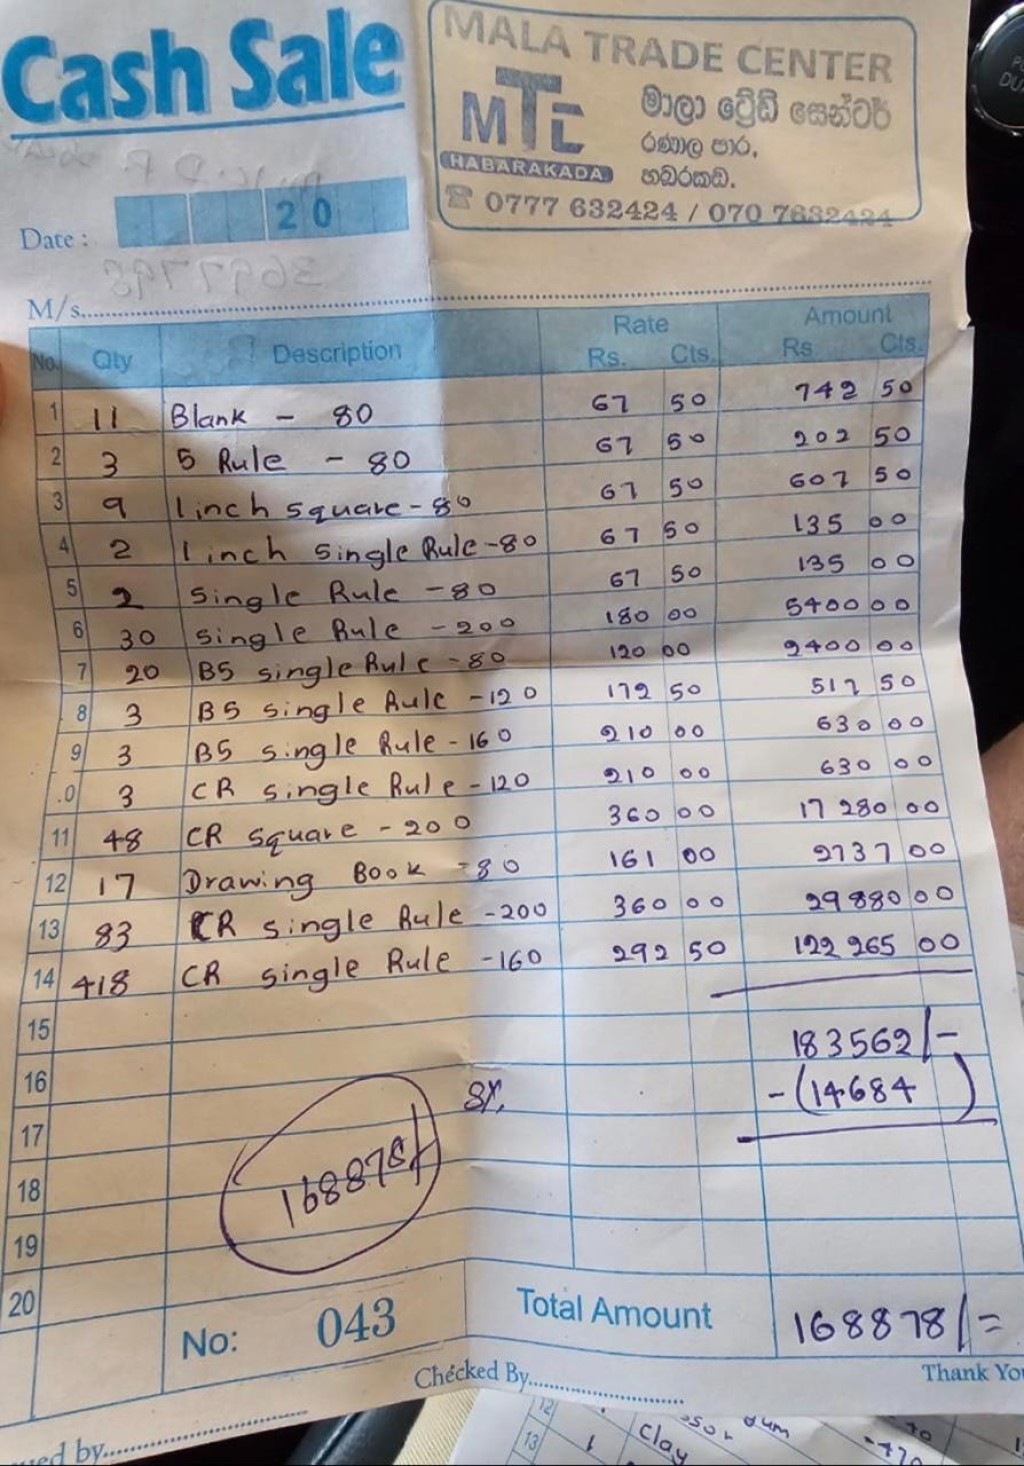 Cash Sale
MALA TRADE CENTER
MTC
මාලා ට්‍රේඩ් සෙන්ටර්
රණාල පාර,
හබරකඩ.
HABARAKADA
☎ 0777 632424 / 070 7632424
Date : 20
M/s
No. Qty Description Rate Rs. Cts. Amount Rs Cts.
1 11 Blank - 80 67 50 742 50
2 3 5 Rule - 80 67 50 202 50
3 9 1 inch square - 80 67 50 607 50
4 2 1 inch single Rule - 80 67 50 135 00
5 2 Single Rule - 80 67 50 135 00
6 30 Single Rule - 200 180 00 5400 00
7 20 B5 single Rule - 80 120 00 2400 00
8 3 B5 single Rule - 120 172 50 517 50
9 3 B5 single Rule - 160 210 00 630 00
.0 3 CR single Rule - 120 210 00 630 00
11 48 CR square - 200 360 00 17280 00
12 17 Drawing Book - 80 161 00 2737 00
13 83 CR single Rule - 200 360 00 29880 00
14 418 CR single Rule - 160 292 50 122265 00
15 183562/-
16 8% -(14684)
17
18 168878/
19
20
No: 043 Total Amount 168878/=
Checked By
Thank You
ued by
12
13 1 clay